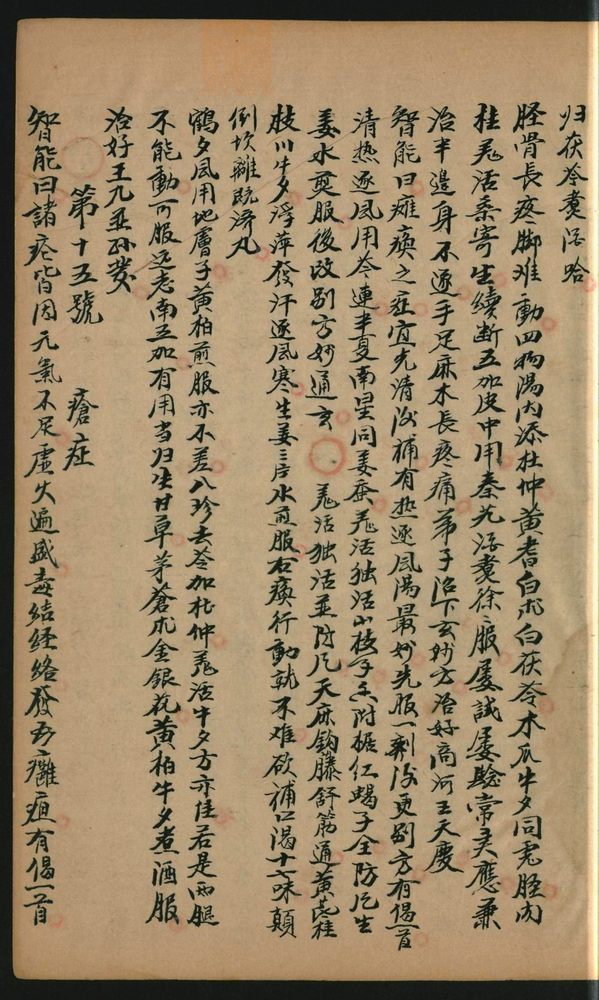 归茯苓煑酒哈
胫骨長疼脚难動四物湯内添杜仲黄耆白朮白茯苓木瓜牛夕同虎胫肉
桂羗活桑寄生續断五加皮中用秦艽酒煑徐々服屡試屡驗常灵應兼
治半邊身不遂手足麻木長疼痛弟子陷下玄妙方治好高河王天慶
智能曰瘫痪之症宜先清后補有热逐風湯最妙先服一剂後更別方有偈一首
清热逐風用苓連半夏南星同姜蚕羗活独活小枝子香附梹仁蝎子全防风生
姜水煎服後改別方妙通玄　羗活独活並防风天麻鈎藤舒筋通黄芪桂
枝川牛夕浮萍發汗逐風寒生姜三片水煎服右瘓行動就不难欲補口渴十六味顛
倒坎離既濟丸
鶴夕風用地膚子黄柏煎服亦不差八珍去苓加杜仲羗活牛夕方亦佳若是兩腿
不能動可服远志南五加有用当归生甘草茅蒼朮金銀花黄柏牛夕煮酒服
治好王九至孙發
第十五號　瘡症
智能曰諸瘡皆因元氣不足虛火遍盛毒结经络發为癰疽有偈一首